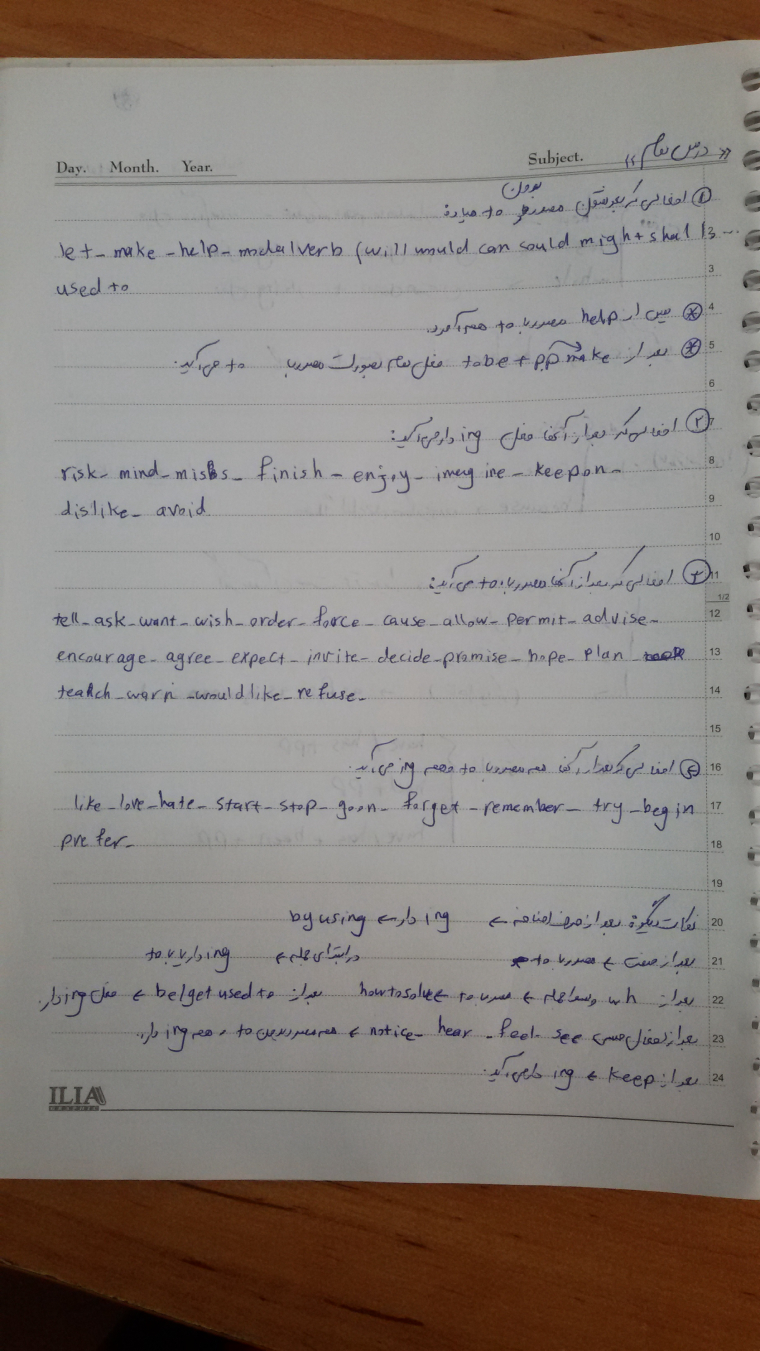 Day. Month. Year. Subject. «درس نهم»
① افعالی که بعدشون مصدر بدون to میاد:
let _ make _ help _ modal verb (will would can sould might shall
used to
⊛ پس از help مصدر با to هم
⊛ بعد از make to be + pp فعل بصورت مصدر با to می‌آید.
② افعالی که بعد از آنها فعل ing دار می‌آید:
risk _ mind _ miss _ finish _ enjoy _ imagine _ keep on _
dislike _ avoid
③ افعالی که بعد از آنها مصدر با to می‌آید:
tell _ ask _ want _ wish _ order _ force _ cause _ allow _ permit _ advise _
encourage _ agree _ expect _ invite _ decide _ promise _ hope _ plan
teach _ warn _ would like _ refuse _
④ افعالی که بعد از آنها هم مصدر با to و هم ing می‌آید.
like _ love _ hate _ start _ stop _ go on _ forget _ remember _ try _ begin
prefer _
نکات دیگر: بعد از حرف اضافه ← ing دار ← by using
بعد از صفت ← مصدر با to در ابتدای جمله ← ing دار یا با to
بعد از wh وسط جمله ← مصدر با to ← how to solve بعد از be/get used to ← فعل ing دار.
بعد از افعال حسی notice _ hear _ feel _ see ← هم مصدر بدون to و هم ing دار.
بعد از keep ← ing دار می‌آید.
ILIA
GRAPHIC